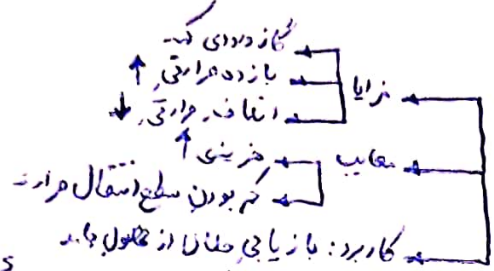 گاز ورودی کم
بازده حرارتی ↑
مزایا
اتلاف حرارتی ↓
معایب
هزینه‌ی ↑
کم بودن سطح انتقال حرارت
کاربرد: بازیابی حلال از محلول جامد